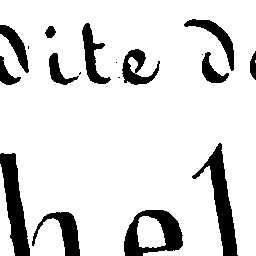 dite de
hel